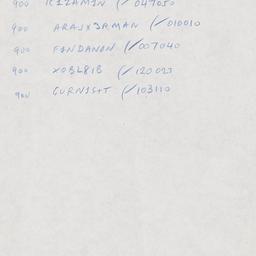 900 RIZAMIN (/ 047050
900 ARAJXJAMAN (/010010
900 FONDANON (/007040
900 XOBL8IB (/120023
900 CURNIS+T (/103110